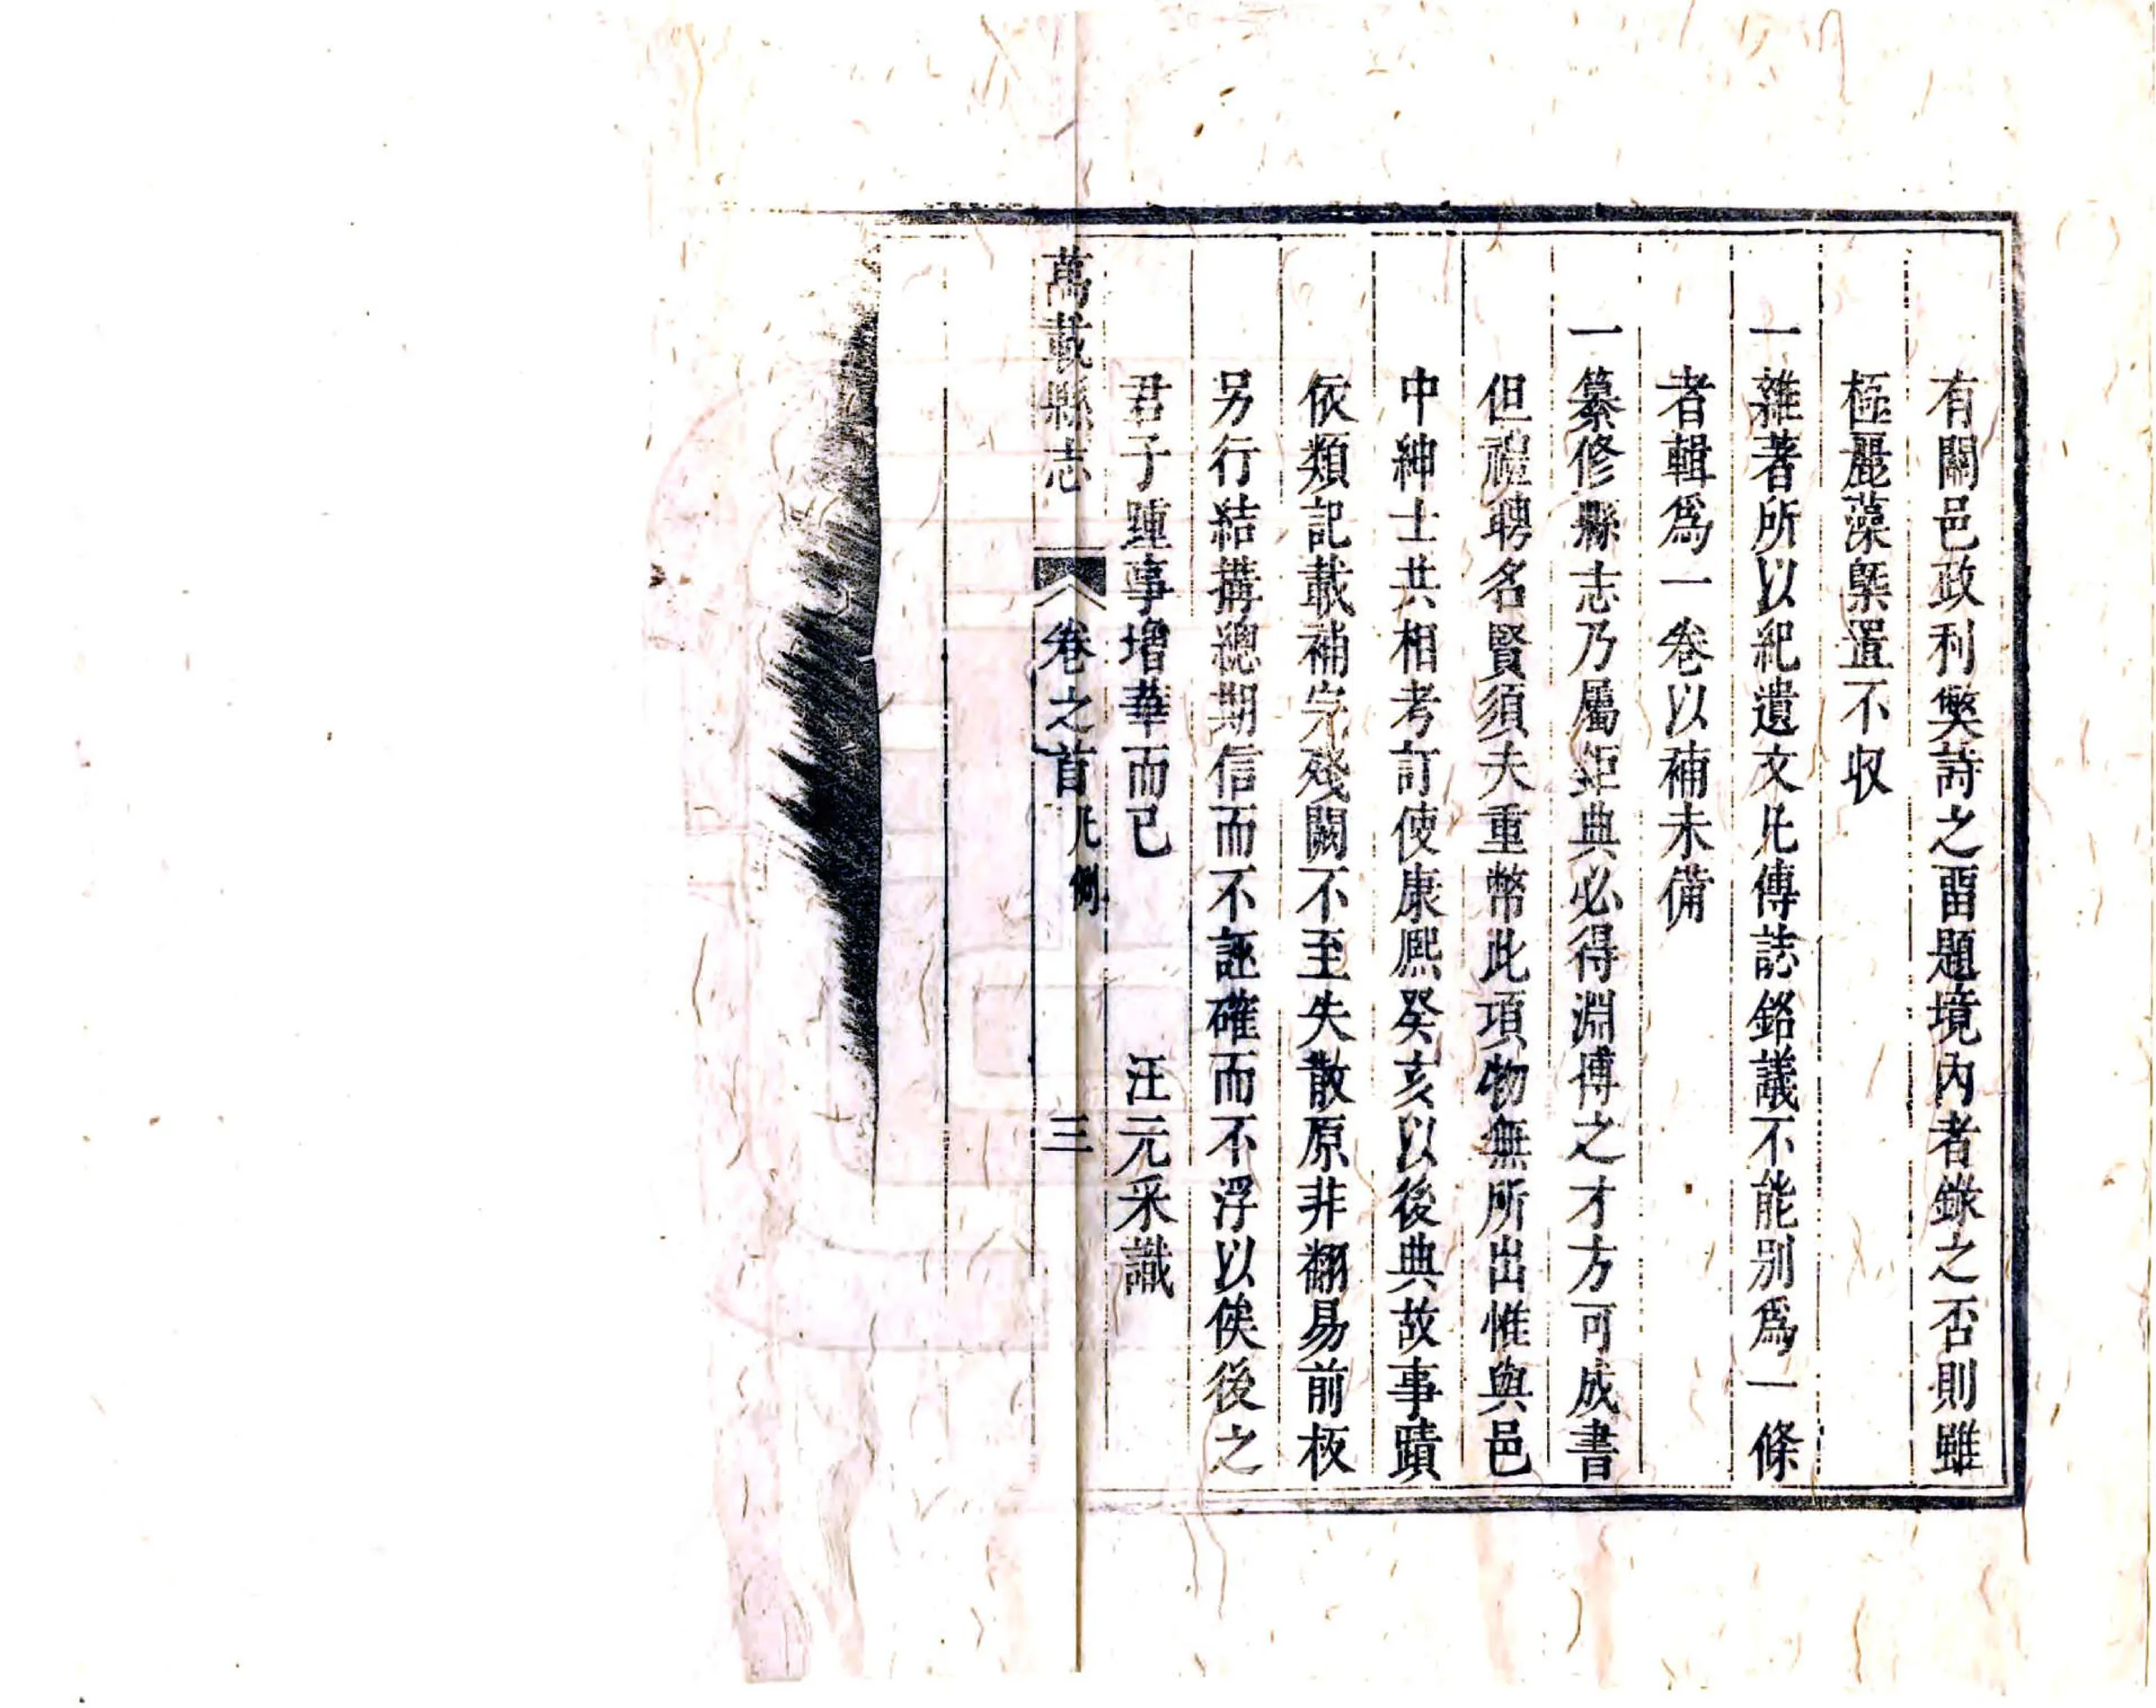 有關邑政利獘詩之畱題境內者錄之否則雖
極麗藻槩置不収
一雜著所以紀遺文凡傳誌銘議不能别爲一條
者輯爲一卷以補未備
一纂修縣志乃屬鉅典必得淵博之才方可成書
但禮聘名賢須夫重幣此項物無所出惟與邑
中紳士共相考訂使康熈癸亥以後典故事蹟
依類記載補完殘闕不至失散原非翻易前板
另行結搆總期信而不誣確而不浮以俟後之
君子踵事增華而已　汪元采識
萬載縣志　卷之首　凡例　三